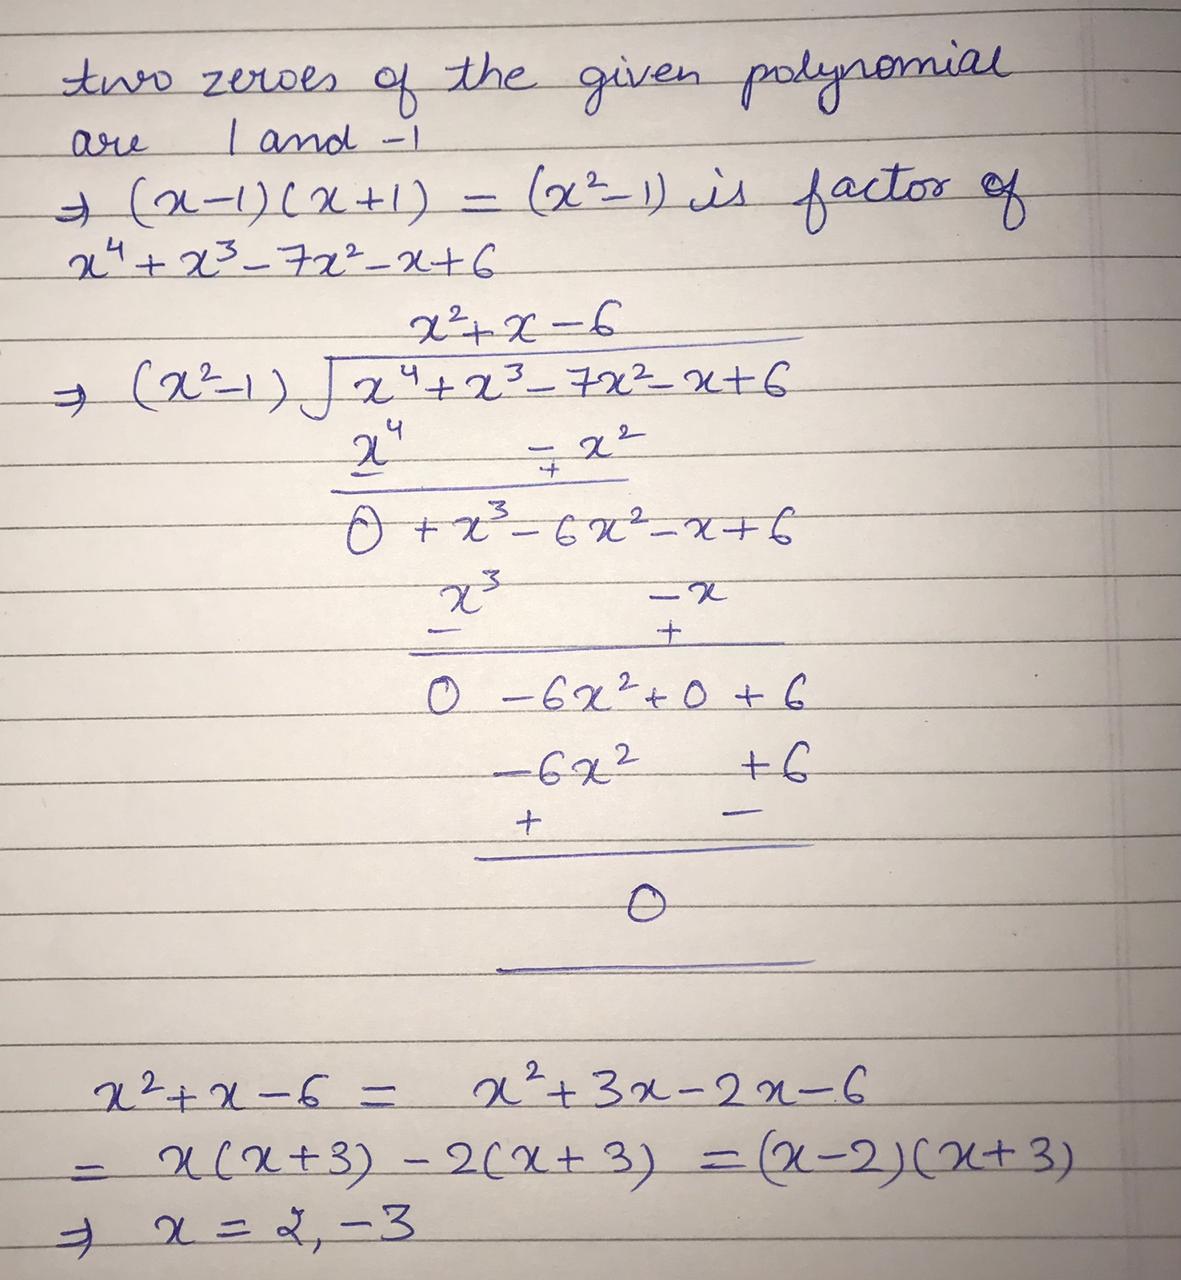 two zeroes of the given polynomial
are 1 and -1
⇒ (x-1)(x+1) = (x²-1) is factor of
x⁴+x³-7x²-x+6
x²+x-6
⇒ (x²-1)√x⁴+x³-7x²-x+6
x⁴ - x²
- +
0 +x³-6x²-x+6
x³ -x
- +
0 -6x²+0+6
-6x² +6
+ -
0
x²+x-6 = x²+3x-2x-6
= x(x+3) -2(x+3) = (x-2)(x+3)
⇒ x = 2, -3